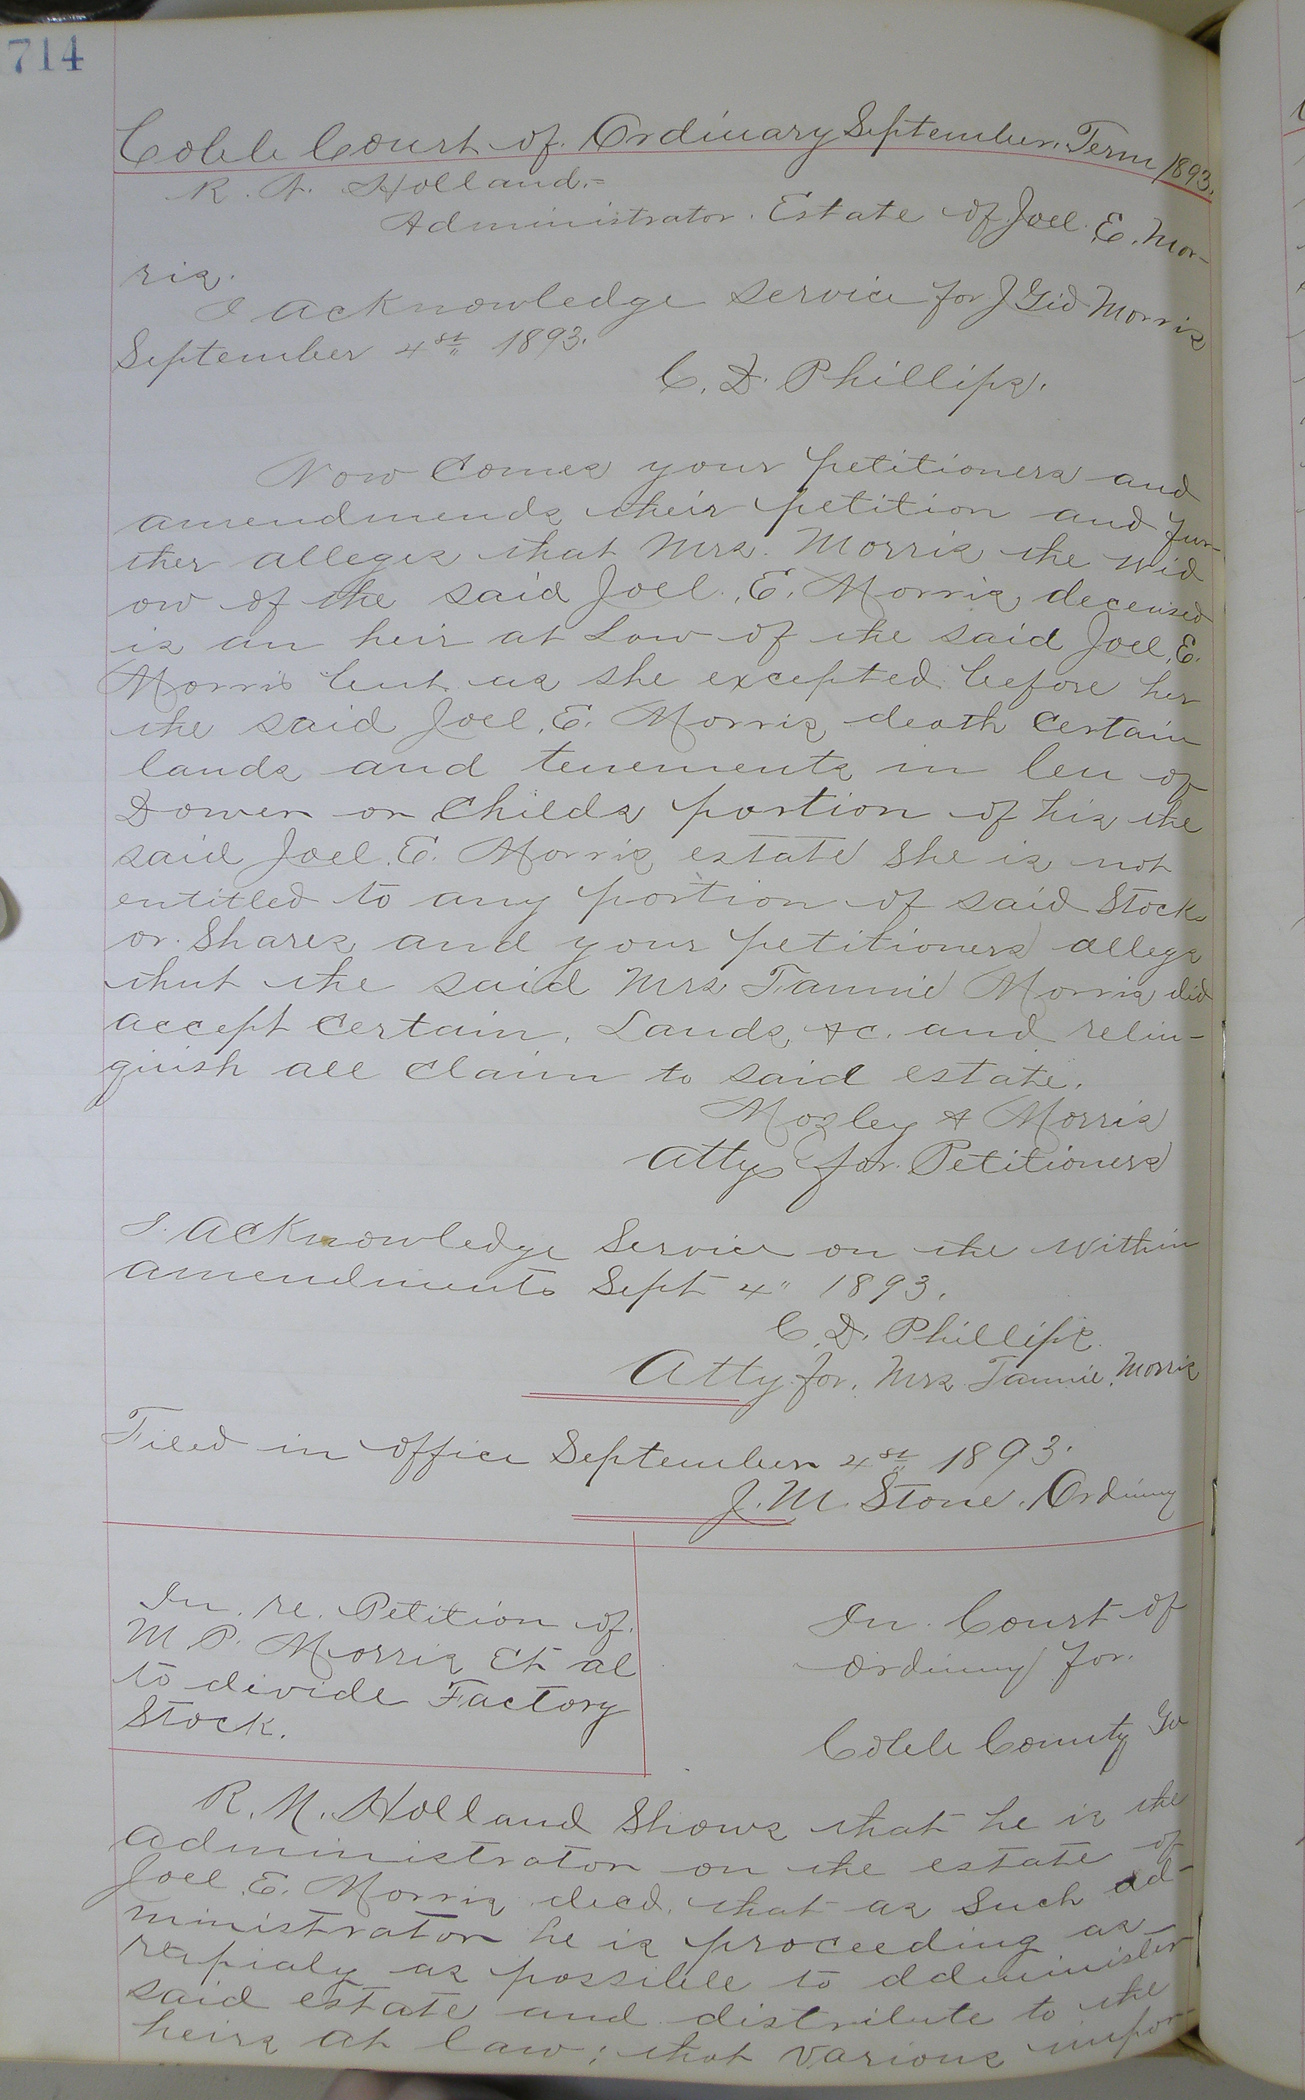 714
Cobb Court of Ordinary September Term 1893.
R. N. Holland.=
Administrator. Estate of Joel. E. Mor-
ris.
I acknowledge service for J Gid Morris
September 4st 1893.
C. D. Phillips.
Now Comes your petitioners and
amendmends their petition and fur-
ther alleges that Mrs. Morris the wid
ow of the said Joel. E. Morris, deceased
is an heir at Law of the said Joel. E.
Morris but as she excepted before her
the said Joel. E. Morris death Certain
lands and tenements in leu of
Dower or Childs portion of his the
said Joel. E. Morris estate She is not
entitled to any portion of said Stock
or Shares and your petitioners allege
that the said Mrs Tannie Morris did
accept Certain. Lands, &c. and relin-
quish all claim to said estate.
Mozley & Morris
Attys for. Petitioners
I. acknowledge Service on the within
amendments Sept 4" 1893.
C. D. Phillips.
Atty. for. Mrs Tannie. Morris
Filed in office September 4st 1893.
J. M. Stone. Ordinay
In. re. Petition of.
M P. Morris, Et al
to divide Factory
Stock.
In. Court of
ordinny for.
Cobb County Ga
R. M. Holland Shows that he is the
administrator on the estate of
Joel. E. Morris decd. that as Such ad-
ministrator he is proceeding as
rapialy as possible to ddminister
said estate and distribute to the
heirs at law; that various impor-